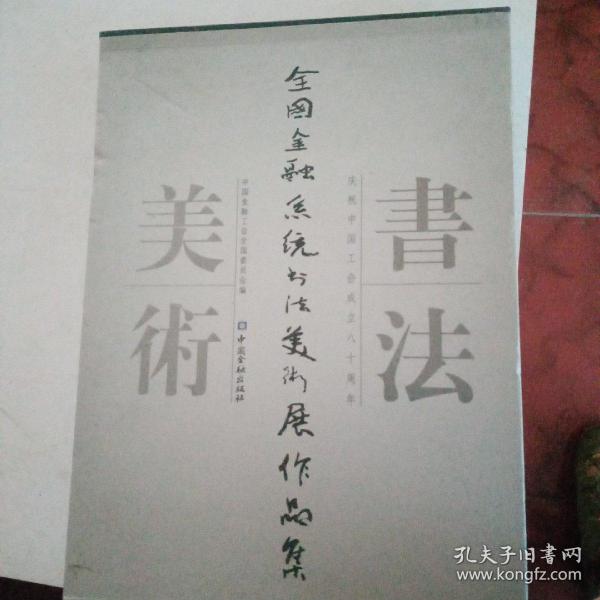 書法
庆祝中国工会成立八十周年
全國金融系统书法美術展作品集
中国金融工会全国委员会编
中国金融出版社
美術
孔夫子旧书网
www.kongfz.com